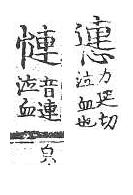 力延切
泣血也
慩
音連
泣血